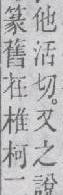 他活切。又之說
篆舊在椎柯一